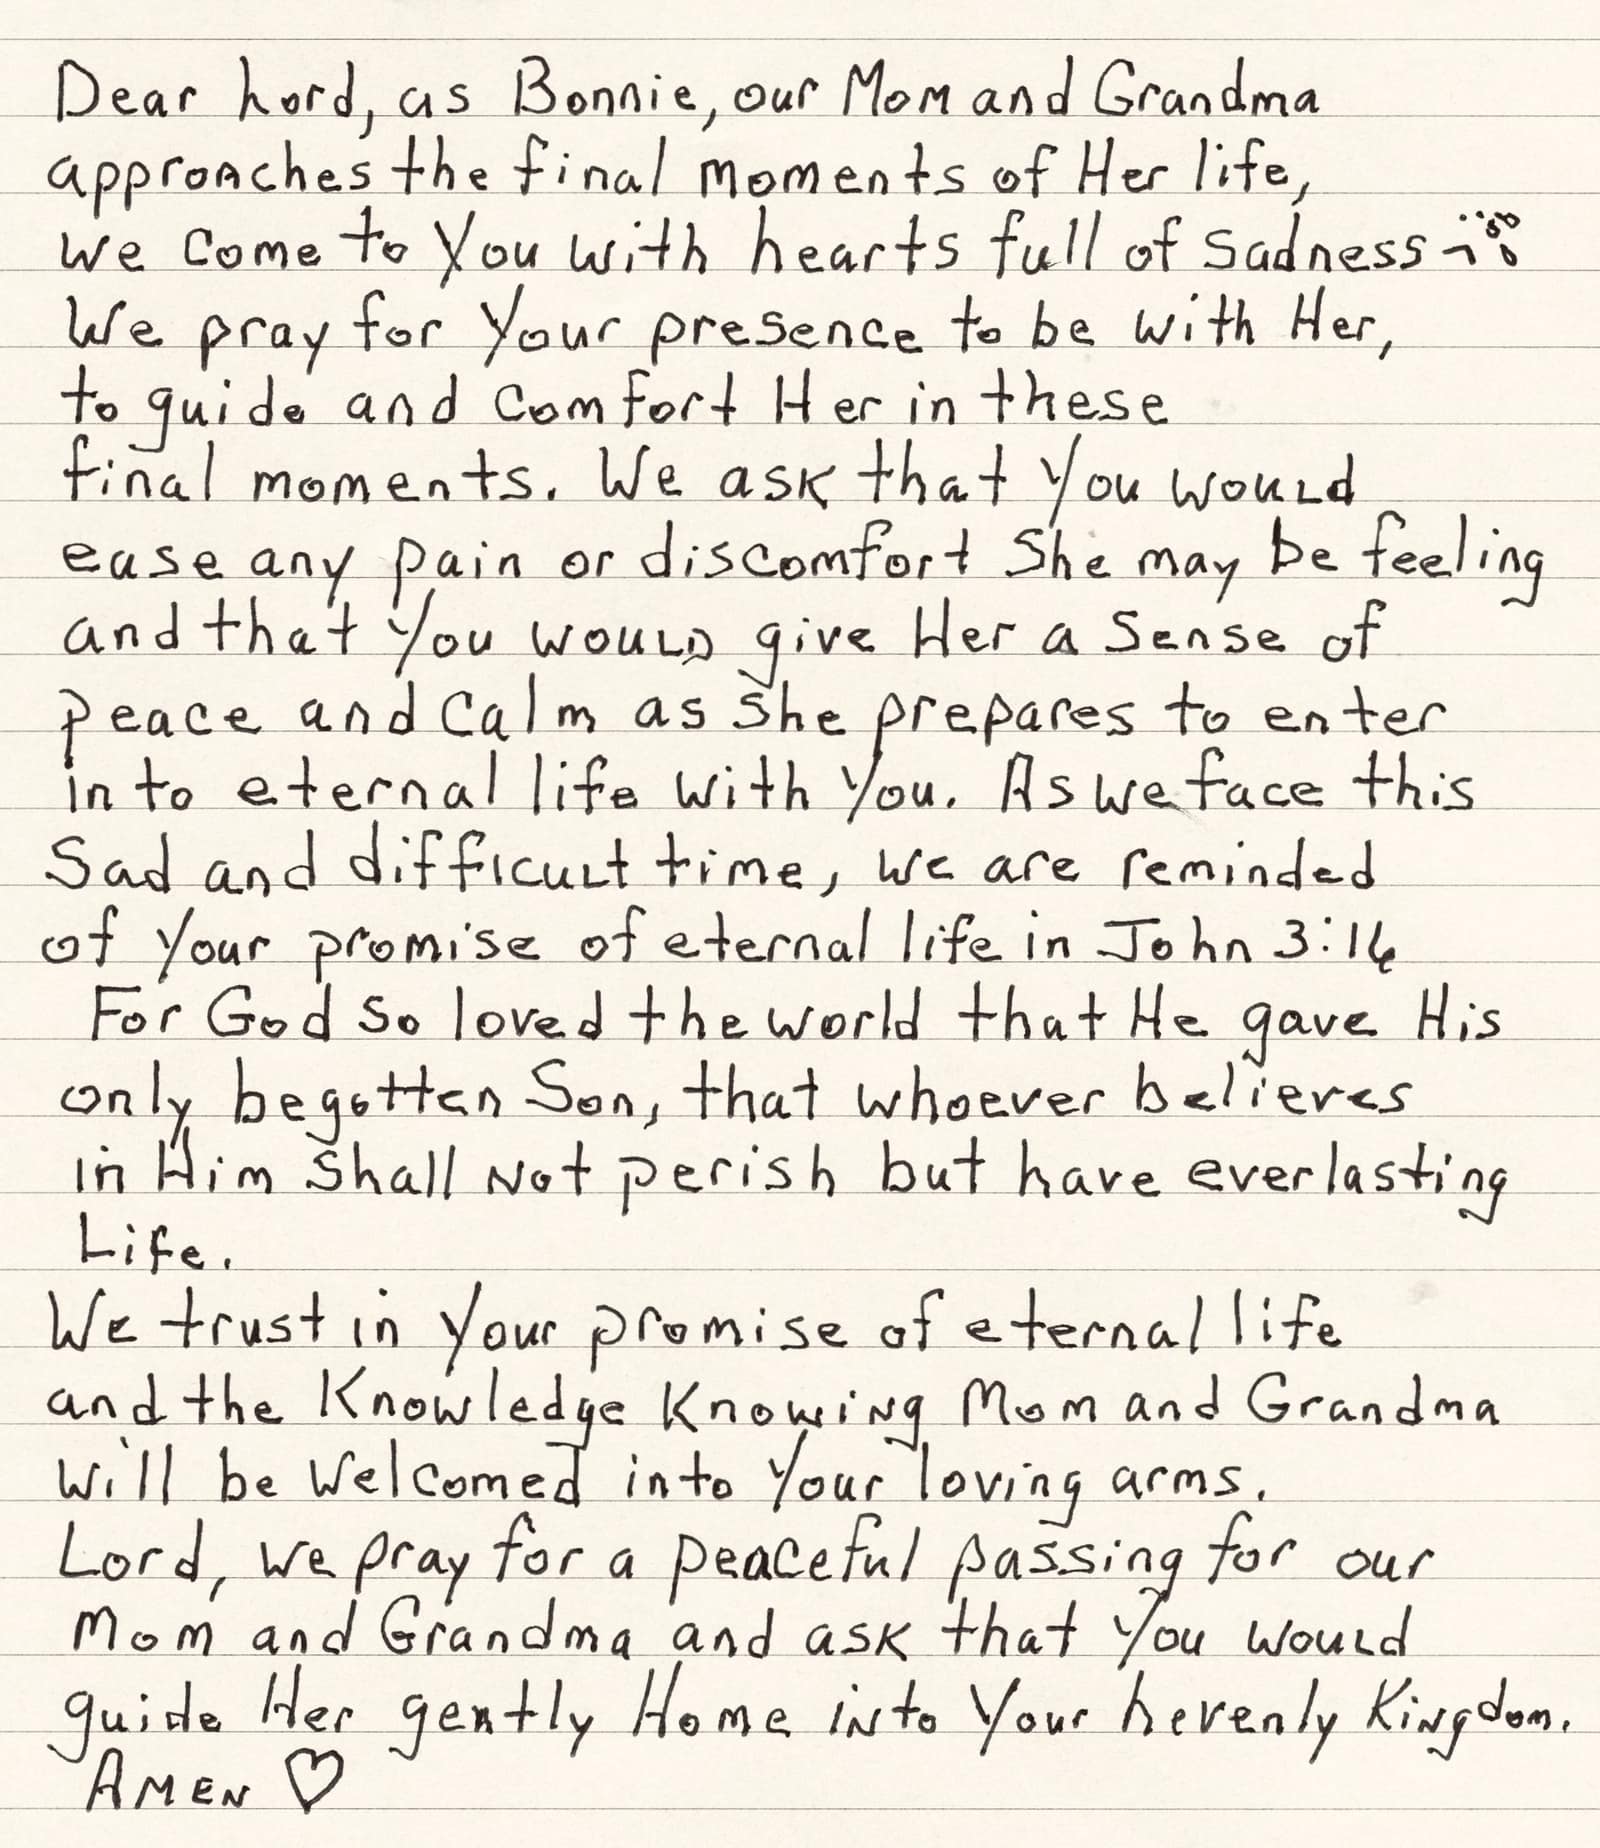 Dear Lord, as Bonnie, our Mom and Grandma
approaches the final moments of Her life,
we come to You with hearts full of sadness
We pray for Your presence to be with Her,
to guide and comfort Her in these
final moments. We ask that You would
ease any pain or discomfort She may be feeling
and that You would give Her a sense of
peace and calm as she prepares to enter
into eternal life with You. As we face this
Sad and difficult time, we are reminded
of Your promise of eternal life in John 3:16
For God so loved the world that He gave His
only begotten Son, that whoever believes
in Him shall Not perish but have everlasting
Life.
We trust in Your promise of eternal life
and the Knowledge Knowing Mom and Grandma
will be Welcomed into Your loving arms.
Lord, we pray for a peaceful passing for our
Mom and Grandma and ask that You would
guide Her gently Home into Your hevenly Kingdom.
AMEN ♡